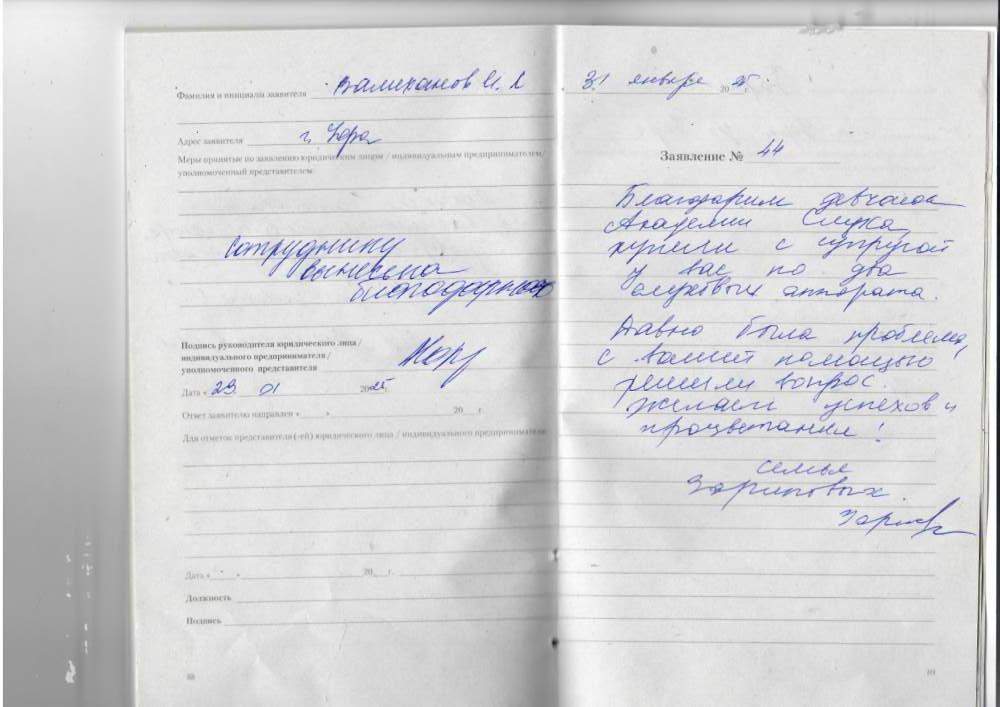 Фамилия и инициалы заявителя Валиханов И. Я
Адрес заявителя г. Уфа
Меры принятые по заявлению юридическим лицом / индивидуальным предпринимателем/
уполномоченный представителем:
Сотруднику
вынесена
благодарность
Подпись руководителя юридического лица /
индивидуального предпринимателя /
уполномоченного представителя
Дата « 29. 01 2025г.
Ответ заявителю направлен «____»____ 20__г.
Для отметок представителя (-ей) юридического лица / индивидуального предпринимателя
Дата «____»____ 20__г.
Должность
Подпись
88
31 январе 2025г.
Заявление № 44
Благодарим девчонок
Академии Слуха
купили с супругой
у вас по два
слуховых аппарата.
Давно была проблема,
с вашей помощью
решили вопрос.
Желаем успехов и
процветания!
семья
Зариповых.
89